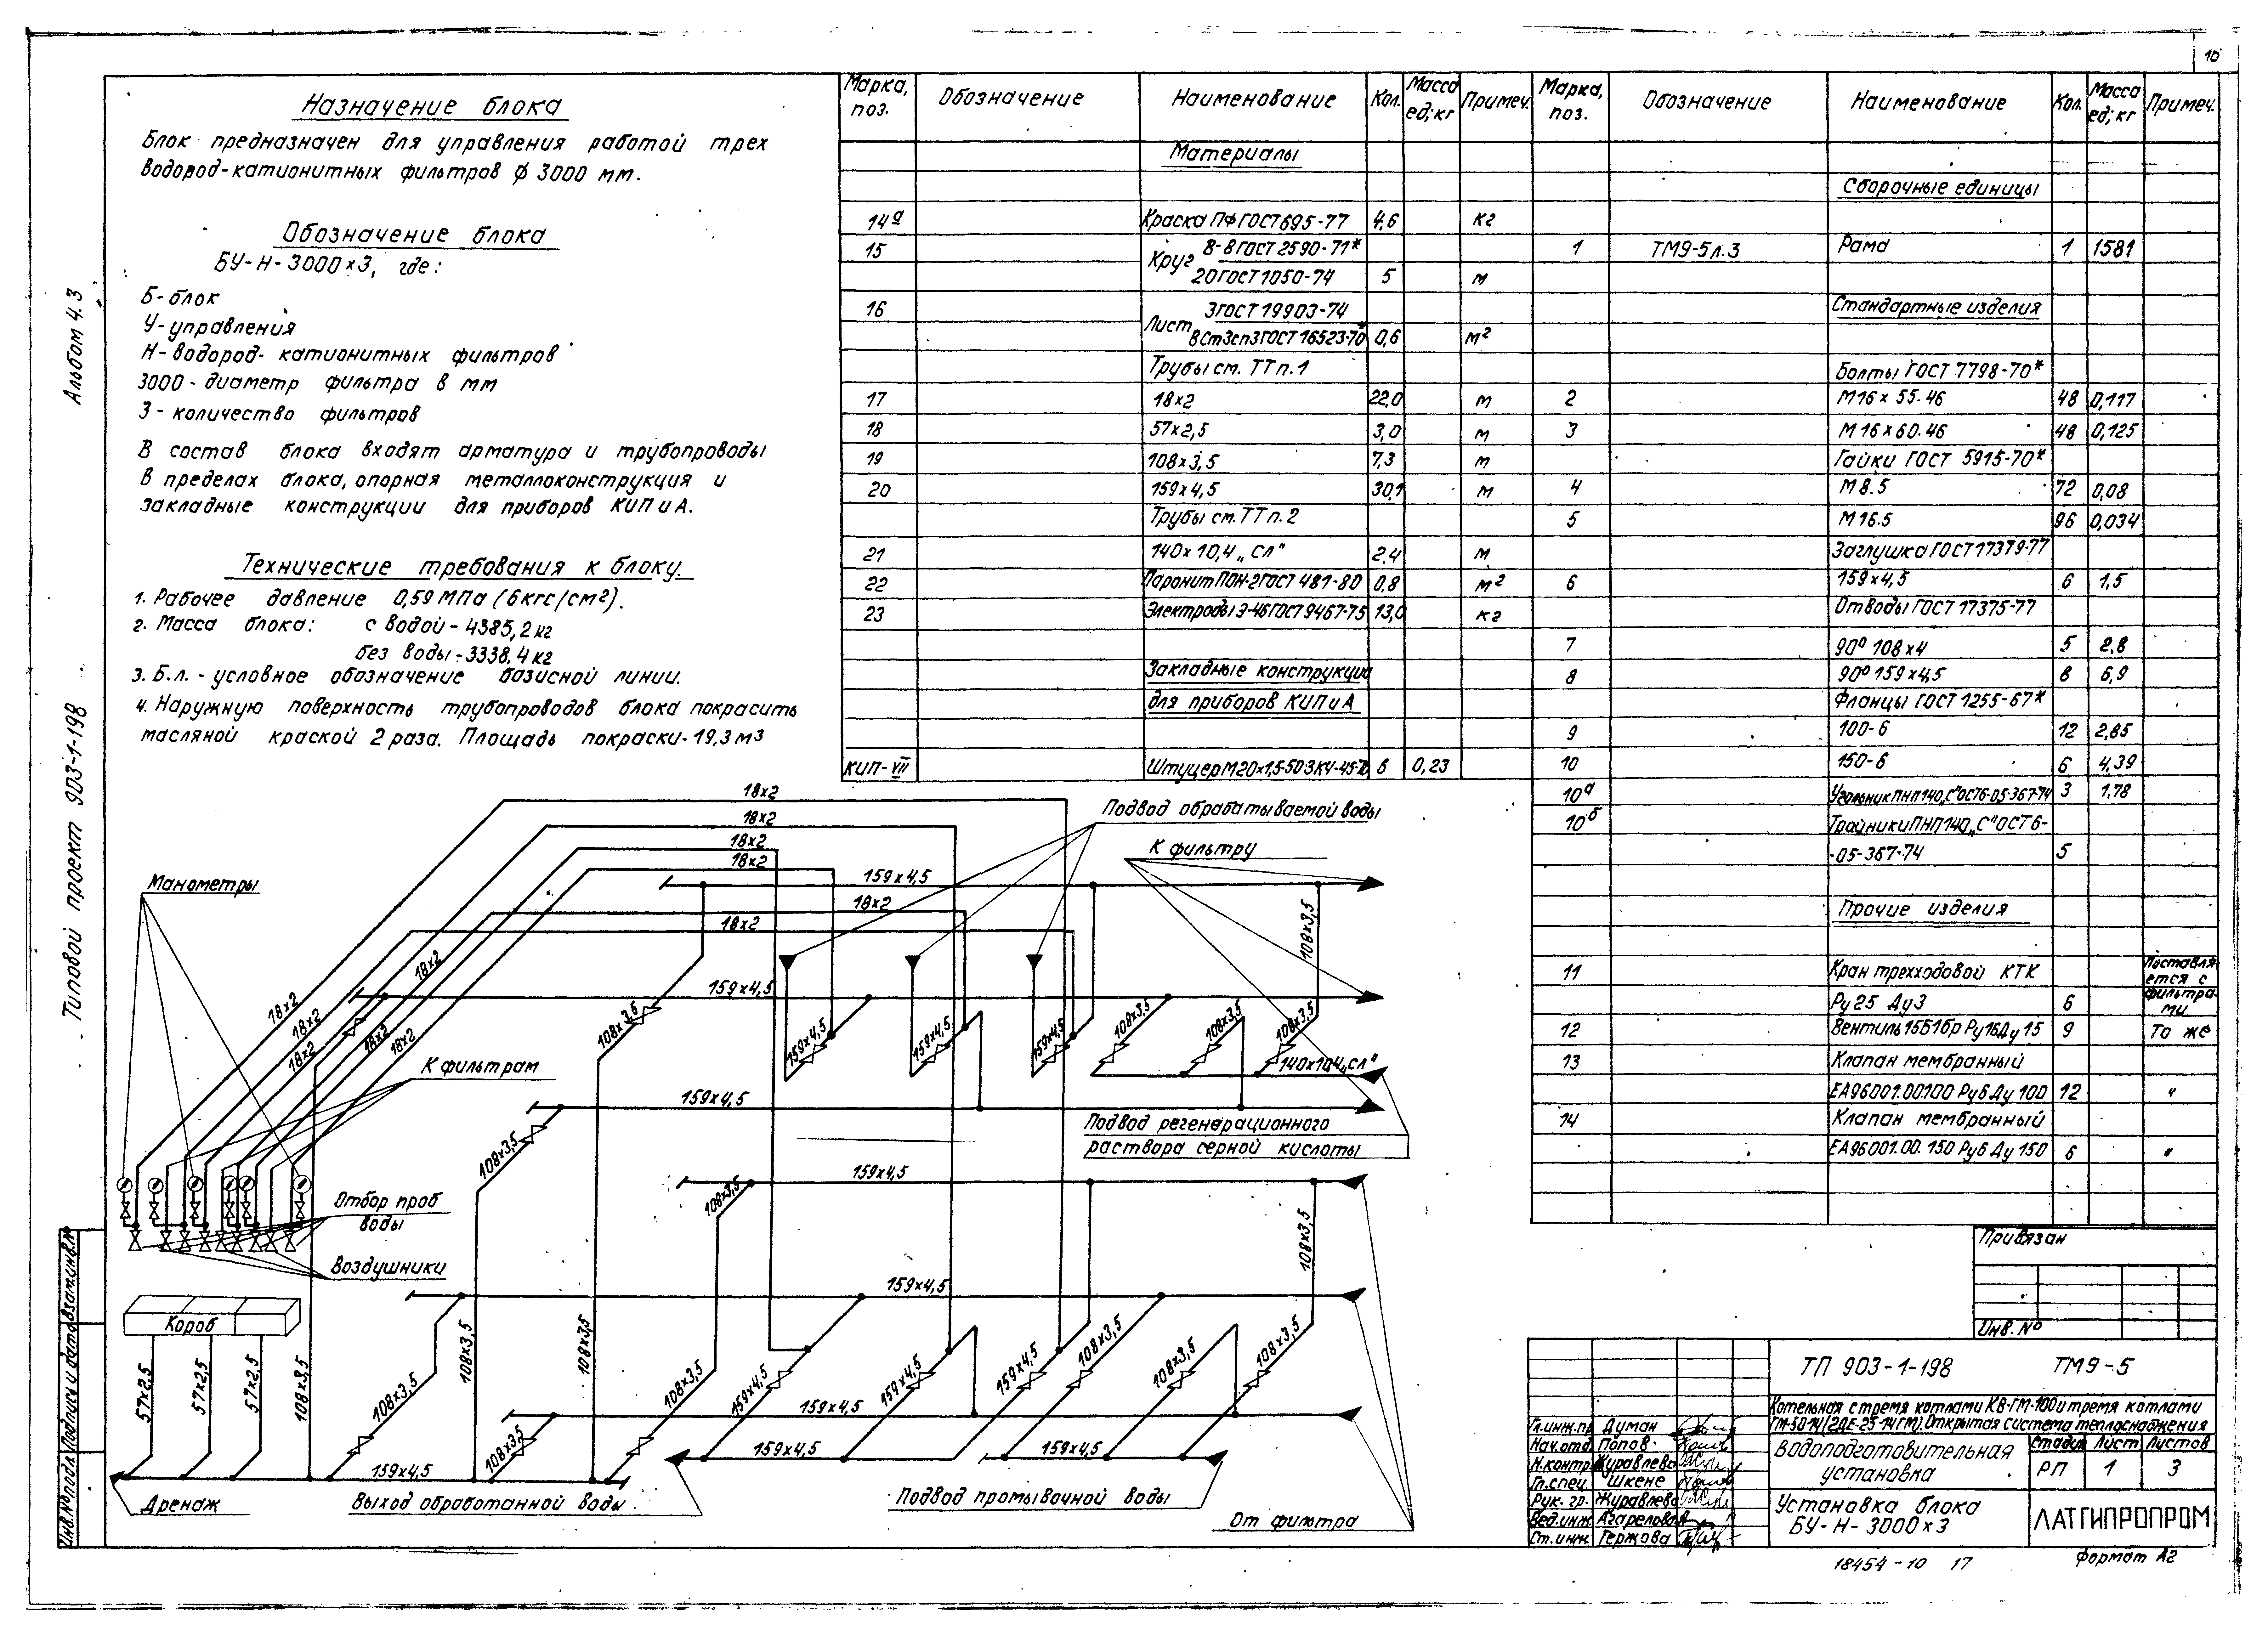 10
Назначение блока
Блок предназначен для управления работой трех
водород-катионитных фильтров ф 3000 мм.
Обозначение блока
БУ-Н-3000х3, где:
Б-блок
У-управления
Н-водород-катионитных фильтров
3000-диаметр фильтра в мм
3-количество фильтров
В состав блока входят арматура и трубопроводы
в пределах блока, опорная металлоконструкция и
закладные конструкции для приборов КИП и А.
Технические требования к блоку.
1. Рабочее давление 0,59 МПа (6кгс/см²).
2. Масса блока: с водой-4385,2 кг
без воды-3338,4 кг
3. Б.л. - условное обозначение базисной линии.
4. Наружную поверхность трубопроводов блока покрасить
масляной краской 2 раза. Площадь покраски-19,3 м3
Альбом 4.3
Типовой проект 903-1-198
Марка, поз. Обозначение Наименование Кол. Масса ед; кг Примеч.
Материалы
14а Краска ПФ ГОСТ 695-77 4,6 кг
15 Круг 8-8 ГОСТ 2590-71*
20 ГОСТ 1050-74 5 м
16 Лист 3 ГОСТ 19903-74
ВСт3сп3 ГОСТ 16523-70* 0,6 м²
Трубы см. ТТ п. 1
17 18х2 22,0 м
18 57х2,5 3,0 м
19 108х3,5 7,3 м
20 159х4,5 30,1 м
Трубы см. ТТ п. 2
21 140х10,4 „СЛ" 2,4 м
22 Паронит ПОН-2 ГОСТ 481-80 0,8 м²
23 Электроды Э-46 ГОСТ 9467-75 13,0 кг
Закладные конструкции
для приборов КИП и А
КИП-VII Штуцер М20х1,5-50 ЗК4-45-70 6 0,23
Марка, поз. Обозначение Наименование Кол. Масса ед; кг Примеч.
Сборочные единицы
1 ТМ9-5л.3 Рама 1 1581
Стандартные изделия
Болты ГОСТ 7798-70*
2 М16х55.46 48 0,117
3 М16х60.46 48 0,125
Гайки ГОСТ 5915-70*
4 М8.5 72 0,08
5 М16.5 96 0,034
Заглушка ГОСТ 17379-77
6 159х4,5 6 1,5
Отводы ГОСТ 17375-77
7 90° 108х4 5 2.8
8 90° 159х4,5 8 6,9
Фланцы ГОСТ 1255-67*
9 100-6 12 2,85
10 150-6 6 4,39
10а Угольник ПНП 140„С" ОСТ6-05-367-74 3 1,78
10б Тройники ПНП 140„С" ОСТ 6-
-05-367-74 5
Прочие изделия
11 Кран трехходовой КТК Поставляется с
Ру 25 Ду 3 6 фильтрами
12 Вентиль 15Б1бр Ру16Ду 15 9 То же
13 Клапан мембранный
ЕА96001.00100 Ру6 Ду 100 12 "
14 Клапан мембранный
ЕА96001.00.150 Ру6 Ду 150 6 "
18х2
18х2
18х2
18х2
Подвод обрабатываемой воды
К фильтру
Манометры
159х4,5
18х2
18х2
108х3,5
18х2
159х4,5
18х2
18х2
18х2
18х2
18х2
108х3,5
159х4,5
159х4,5
159х4,5
108х3,5
108х3,5
108х3,5
140х10,4„СЛ"
К фильтрам
159х4,5
Подвод регенерационного
раствора серной кислоты
108х3,5
159х4,5
108х3,5
108х3,5
Отбор проб
воды
Воздушники
159х4,5
Короб
57х2,5
57х2,5
57х2,5
108х3,5
108х3,5
108х3,5
108х3,5
108х3,5
159х4,5
159х4,5
159х4,5
108х3,5
108х3,5
108х3,5
108х3,5
159х4,5
159х4,5
159х4,5
159х4,5
Дренаж
Выход обработанной воды
Подвод промывочной воды
От фильтра
Инв.№подл. Подпись и дата Взам.инв.№
Привязан
Инв. №
ТП 903-1-198 ТМ9-5
Котельная с тремя котлами КВ-ГМ-100 и тремя котлами
ГМ-50-14 (2ДЕ-25-14ГМ). Открытая система теплоснабжения
Гл.инж.пр Думан
Нач.отд. Попов
Н.контр. Журавлева
Гл.спец. Шкене
Рук. гр. Журавлева
Вед.инж. Агарелова
Ст.инж. Гержова
Водоподготовительная
установка
Стадия Лист Листов
РП 1 3
Установка блока
БУ-Н-3000х3
ЛАТГИПРОПРОМ
18454-10 17
Формат А2